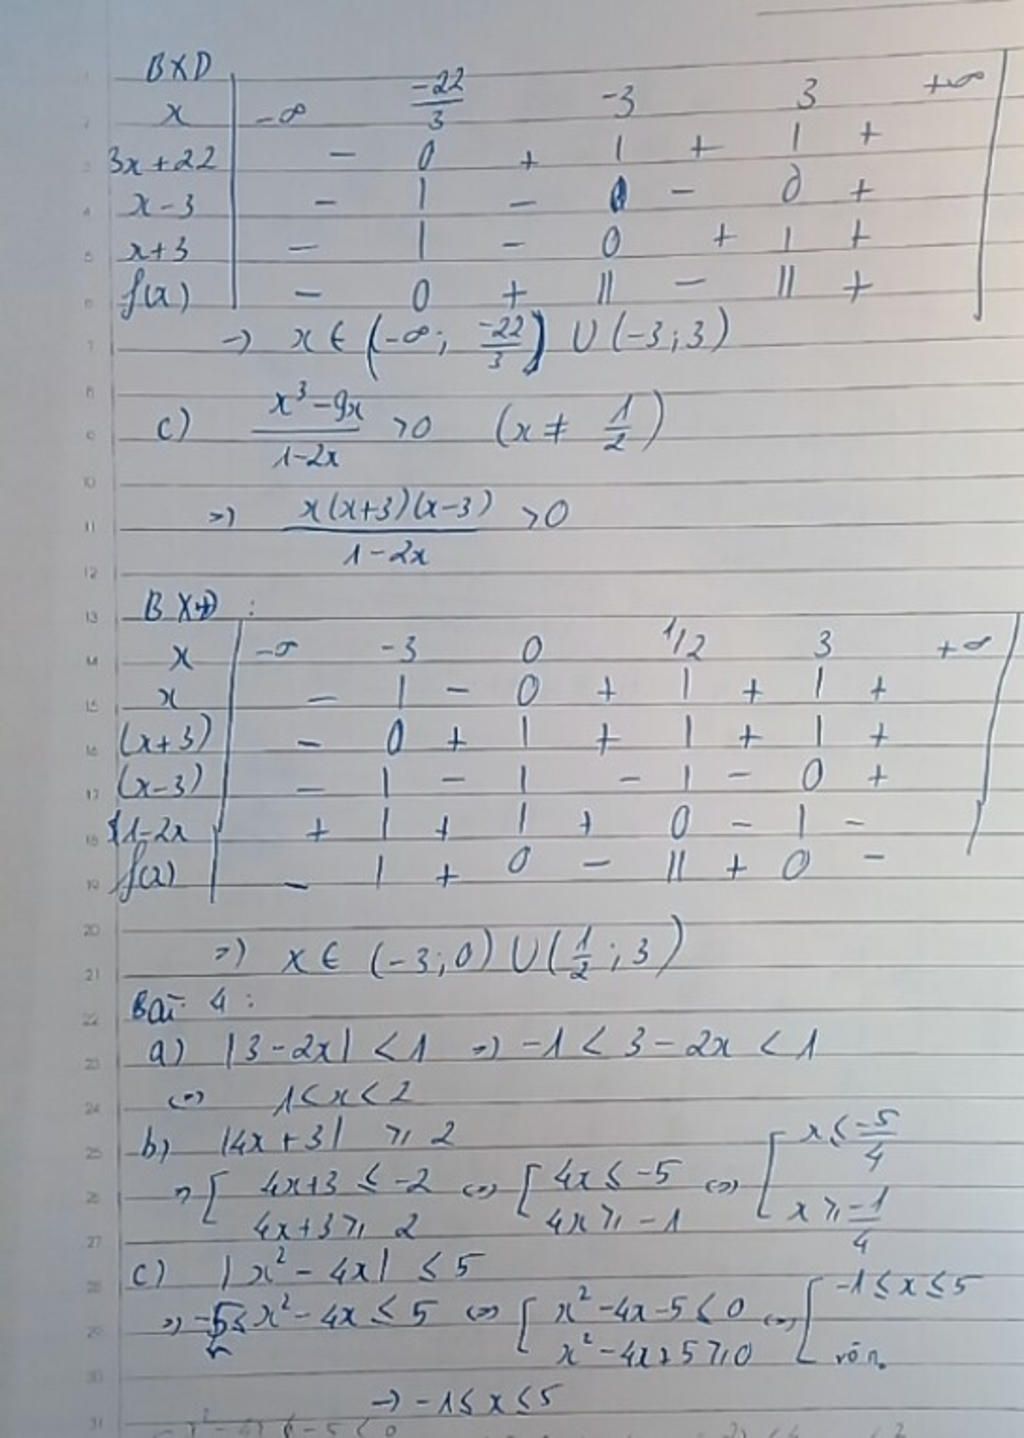 BXD
x | -∞ -22/3 -3 3 +∞
3x+22 | - 0 + | + | +
x-3 | - | - | - 0 +
x+3 | - | - 0 + | +
f(x) | - 0 + || - || +
→ x ∈ (-∞; -22/3) ∪ (-3;3)
c) (x³-9x)/(1-2x) >0 (x ≠ 1/2)
=> x(x+3)(x-3)/(1-2x) >0
BXD :
x | -∞ -3 0 1/2 3 +∞
x | - | - 0 + | + | +
(x+3) | - 0 + | + | + | +
(x-3) | - | - | - | - 0 +
1-2x | + | + | + 0 - | -
f(x) | - | + 0 - || + 0 -
=> x ∈ (-3;0) ∪ (1/2;3)
Bài 4 :
a) |3-2x| <1 => -1 < 3-2x < 1
<=> 1<x<2
b) |4x+3| ≥ 2
=> [ 4x+3 ≤ -2 <=> [ 4x ≤ -5 <=> [ x ≤ -5/4
4x+3 ≥ 2 4x ≥ -1 x ≥ -1/4
c) |x²-4x| ≤ 5
=> -5 ≤ x²-4x ≤ 5 <=> [ x²-4x-5 ≤ 0 <=> [ -1 ≤ x ≤ 5
x²-4x+5 ≥ 0
→ -1 ≤ x ≤ 5